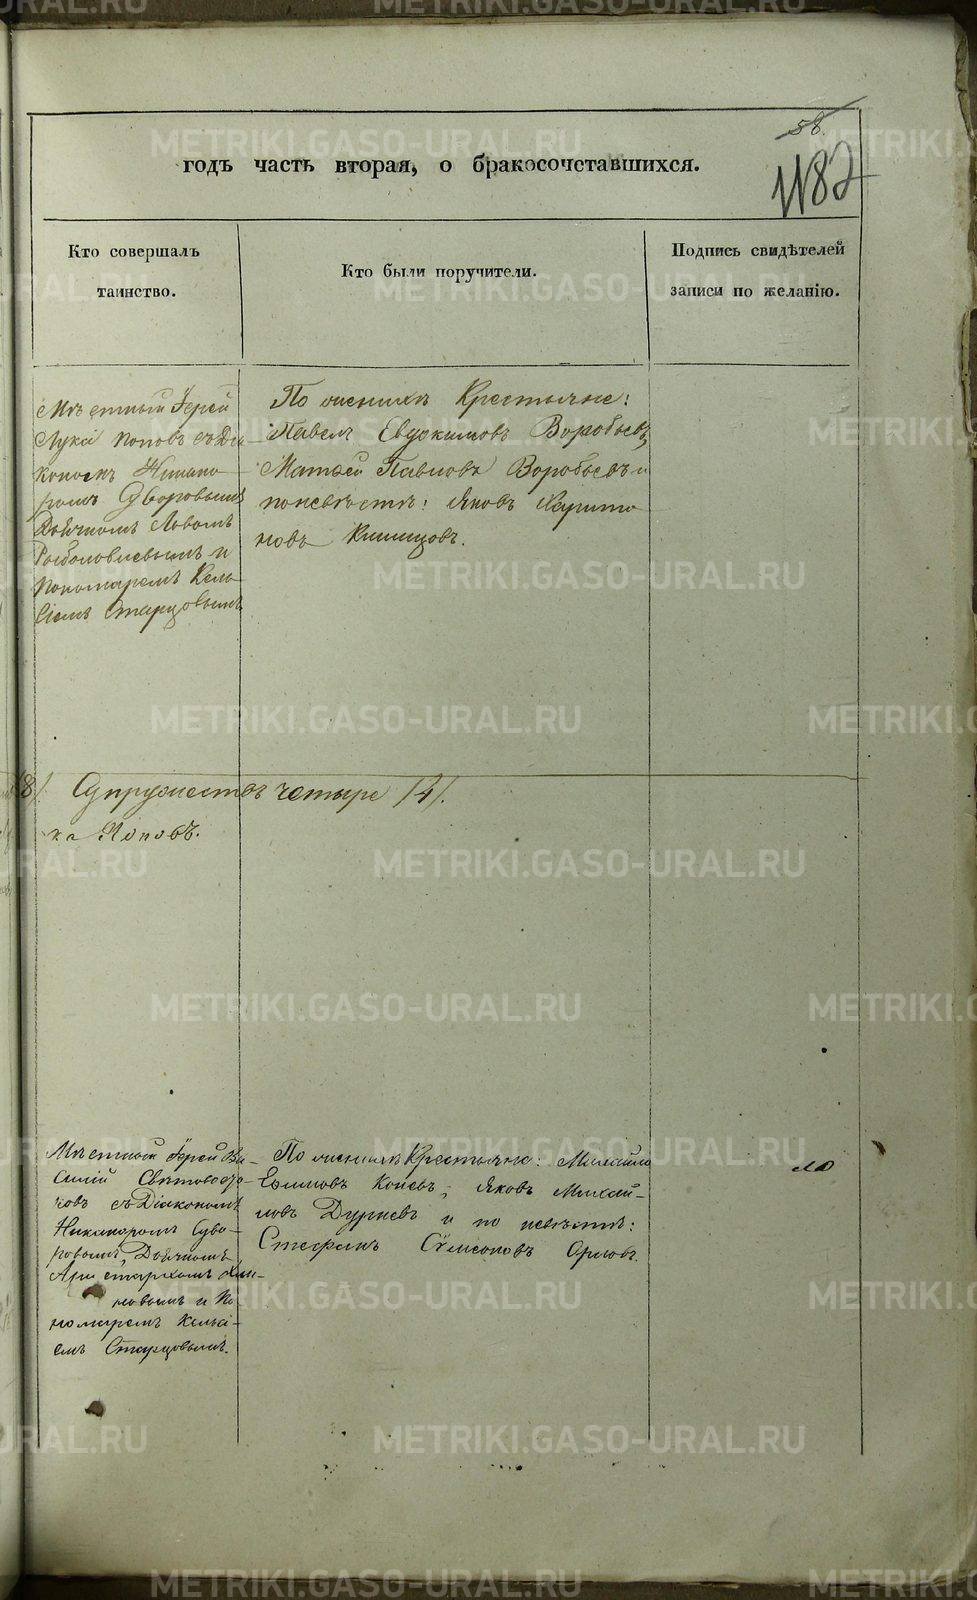 58.
1182
годъ часть вторая, о бракосочетавшихся.
Кто совершалъ
таинство.
Кто были поручители.
Подпись свидѣтелей
записи по желанію.
Мѣстный Іерей
Лука Поповъ съ Діа-
кономъ Никано-
ромъ
Дьячкомъ Львомъ
Рыболовлевымъ и
Пономаремъ Кель-
сіемъ Старцовымъ
По женихѣ Крестьяне:
Павелъ Евдокимовъ Воробьевъ,
Матвей Павловъ Воробьевъ и
по невѣстѣ: Яковъ Харито
новъ
8/. Супружествъ четыре /4/.
ка Поповъ.
Мѣстный Іерей Ва-
силій
ковъ съ Діакономъ
Никаноромъ Суво-
ровымъ, Дьячкомъ
Аристархомъ
новымъ и По
номаремъ Кельсі-
емъ Старцовымъ.
По женихѣ Крестьяне: Михайло
Ефимовъ Коневъ, Яковъ Михай-
ловъ Дурневъ и по невѣстѣ:
Стефанъ Сѵмеоновъ Орловъ.
METRIKI.GASO-URAL.RU